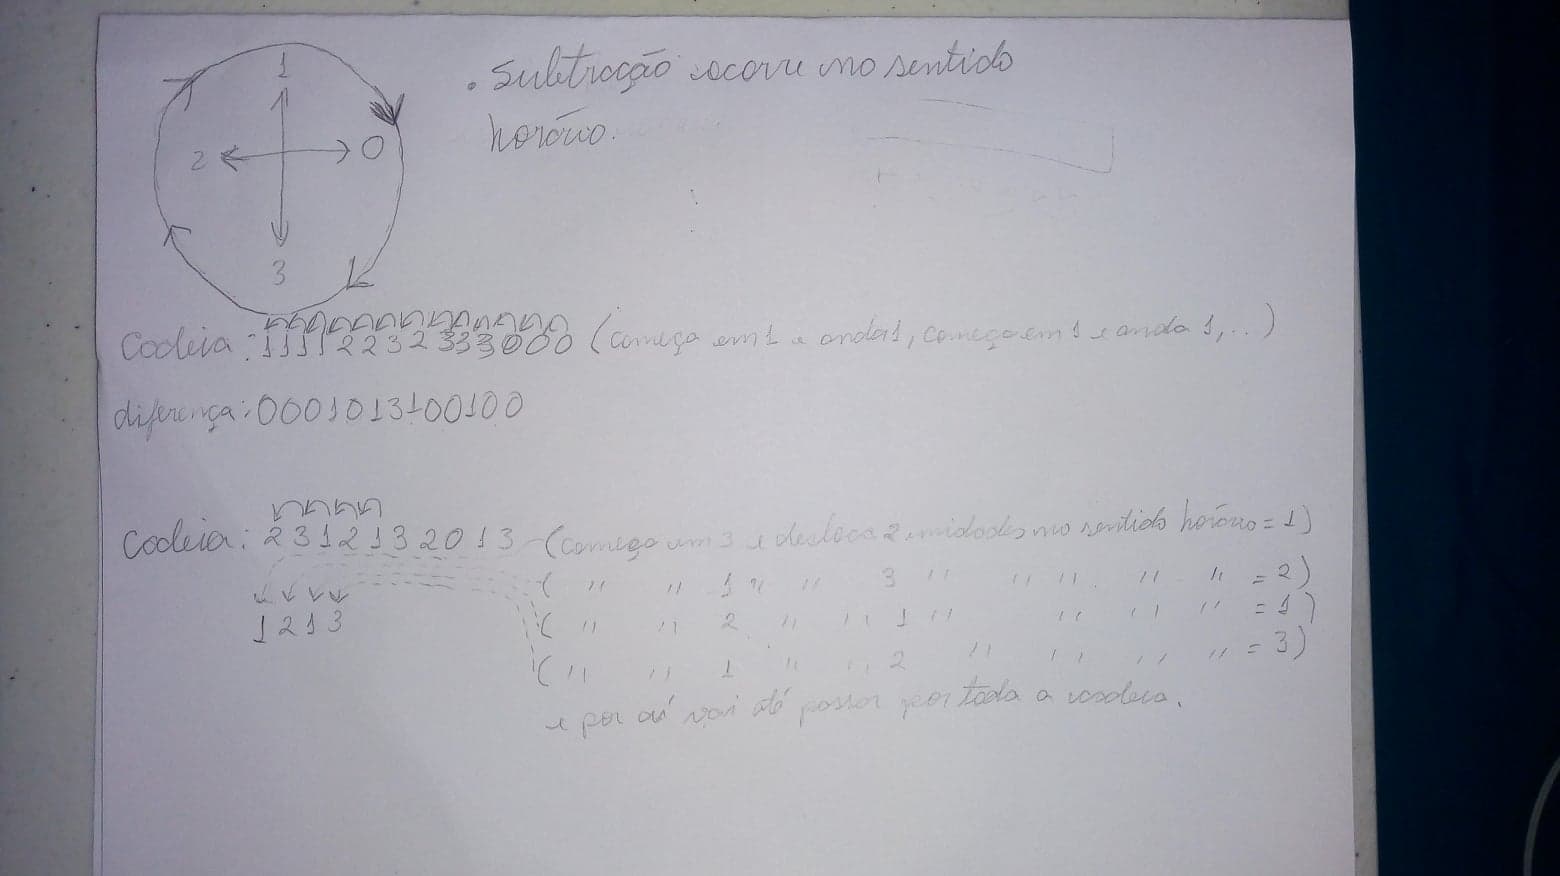 1
2 0
3
. Subtração ocorre no sentido
horário.
Cadeia: 11112232333000 (começa em 1 e anda 1, começa em 1 e anda 1,...)
diferença: 0001013100100
Cadeia: 2312132013 - (começa em 3 e desloca 2 unidades no sentido horário = 1)
( " " 1 " " 3 " " " " " = 2)
1213
( " " 2 " " 1 " " " " = 1)
( " " 1 " " 2 " " " " = 3)
e por aí vai até passar por toda a cadeia.